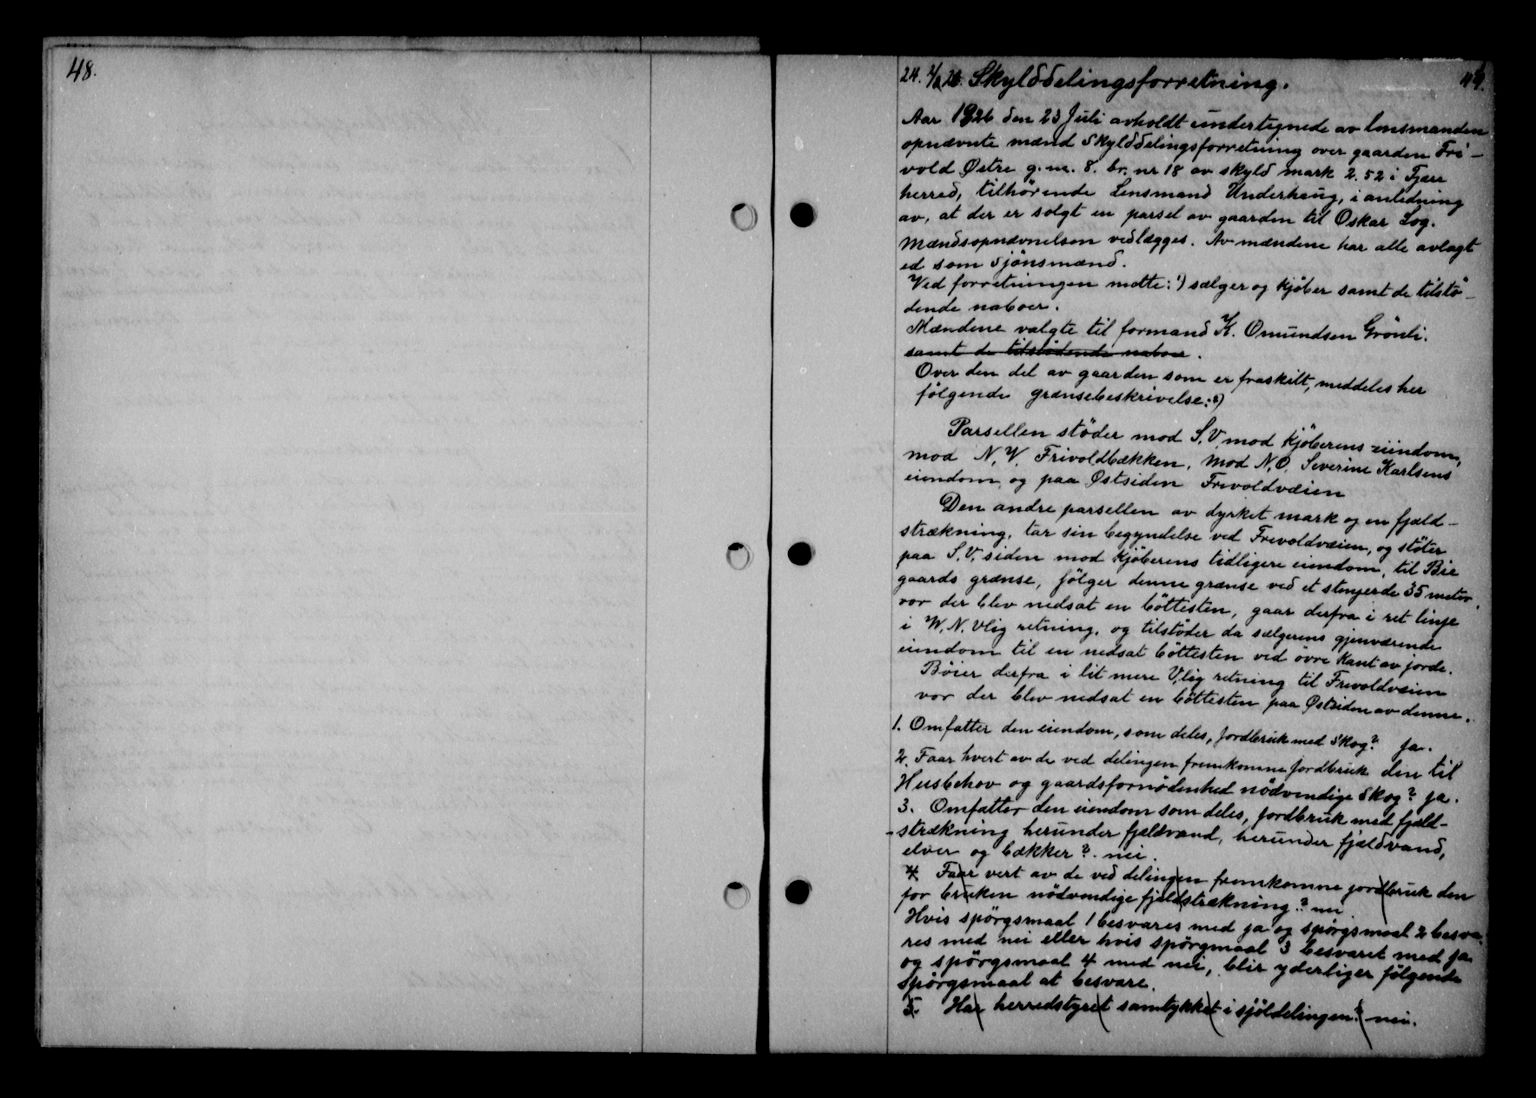 48.
49.
24. 2/8 26. Skylddelingsforretning.
Aar 1926 den 23 Juli avholdt undertegnede av lensmanden
opnævnte mænd Skylddelingsforretning over gaarden Fri-
vold Østre g.nr. 8. br. nr 18 av skyld mark 2.52 i Fjære
herred, tilhørende Lensmand Underhaug, i anledning
av, at der er solgt en parsel av gaarden til Oskar Log.
Mændsopnævnelsen vedlægges. Av mændene har alle avlagt
ed som Sjönsmænd.
Ved forretningen møtte: 1) sælger og kjøber samt de tilstö-
dende naboer.
Mændene valgte til formand K. Omundsen Grönli.
samt de tilstødende naboer.
Over den del av gaarden som er fraskilt, meddeles her
følgende grænsebeskrivelse: 2)
Parsellen støder mod S.V mod Kjöberens eiendom,
mod N.V. Frivoldbækken, mod N.O. Severine Karlsens
eiendom, og paa Østsiden Frevoldvæien
Den andre parsellen av dyrket mark og en fjæld-
strækning, tar sin begyndelse ved Frevoldvæien, og støter
paa S.V. siden mod Kjöberens tidligere eiendom, til Bie
gaards grænse, følger denne grænse ved et stenjerde 35 meter
vor der blev nedsat en böttesten, gaar derfra i ret linje
i W.N. Vlig retning, og tilstöder da sælgerens gjenværende
eiendom til en nedsat böttesten ved övre kant av jorde.
Böier derfra i lit mere V,lig retning til Frevoldvæien
vor der blev nedsat en böttesten paa Østsiden av denne.
1. Omfatter den eiendom, som deles, jordbruk med Skog? ja.
2. Faar hvert av de ved delingen fremkomne jordbruk den til
Husbehov og gaardsfornødenhed nödvendige Skog? ja.
3. Omfatter den eiendom som deles, jordbruk med fjæld-
strækning herunder fjeldvand, herunder fjældvand,
elver og bækker? nei.
4. Faar vert av de ved delingen fremkomne jordbruk den
for bruken nödvendige fjeldstrækning? nei.
Hvis spörgsmaal 1 besvares med ja og spörgsmaal 2 besva-
res med nei eller hvis spörgmaal 3 besvaret med ja
og spörgsmaal 4 med nei, blir yderliger følgende
spörgsmaal at besvare.
5. Har herredstyret samtykket i sjöldelingen? nei.